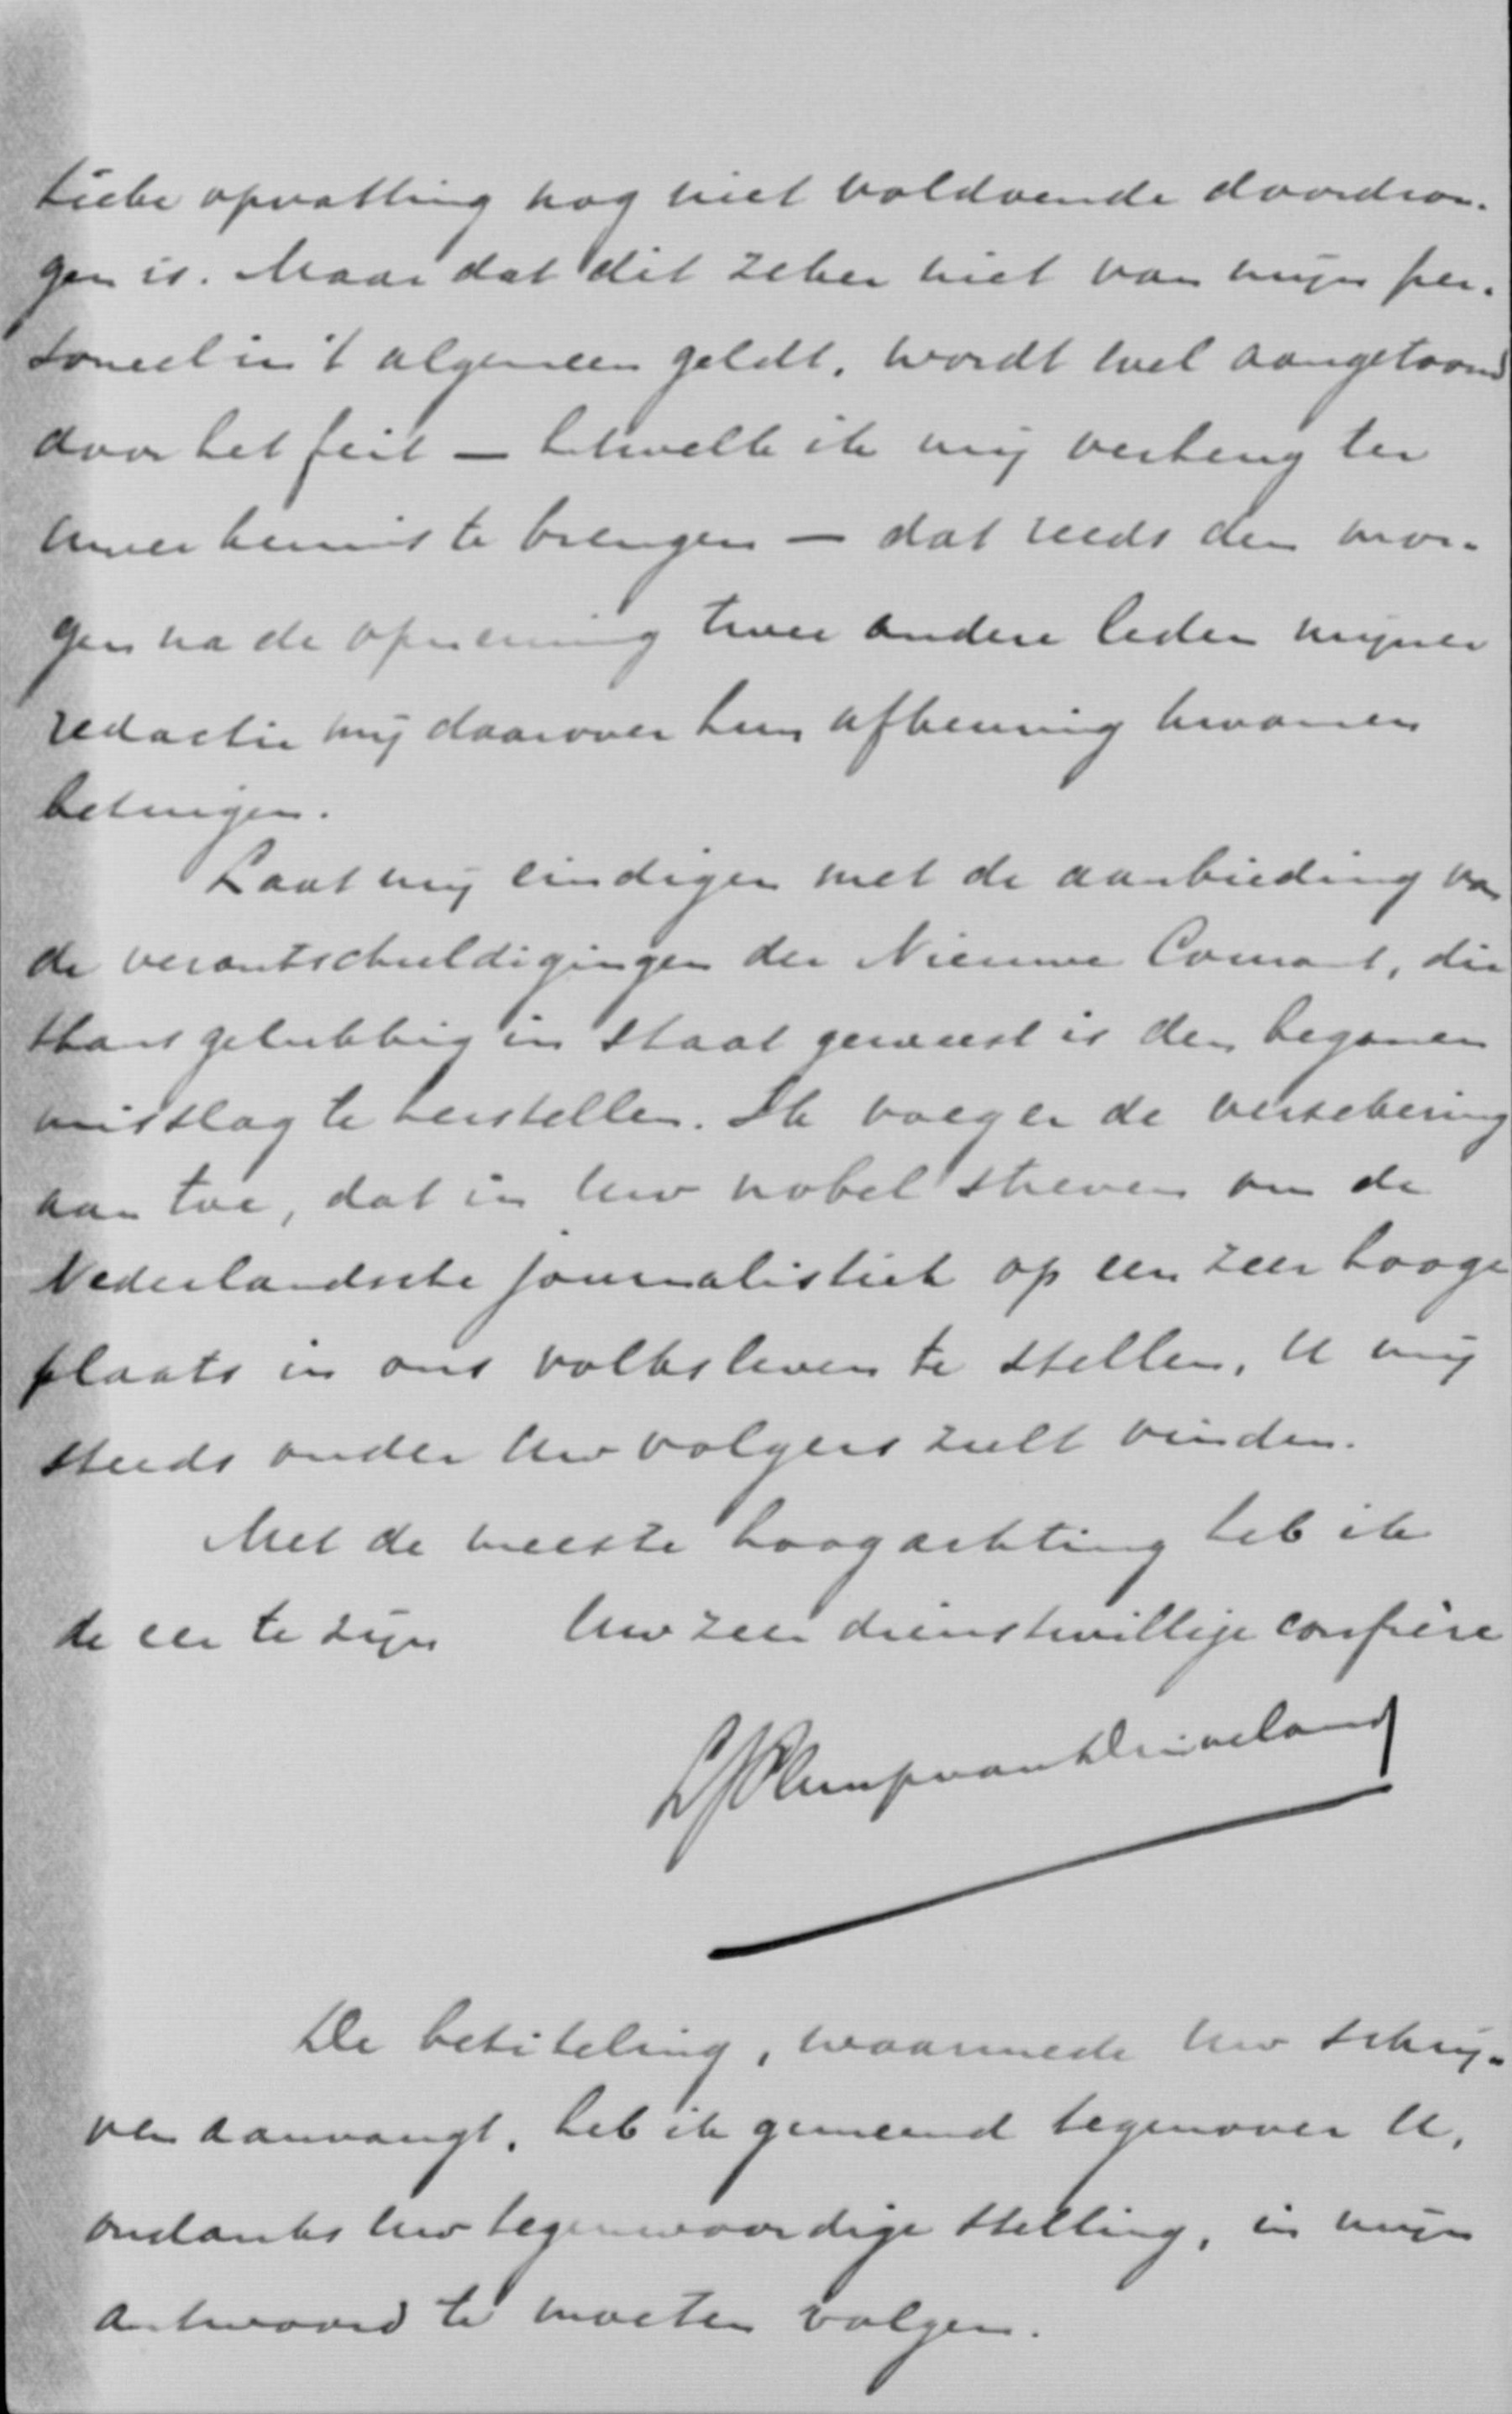 tieke opvatting nog niet voldoende doordron-
gen is. Maar dat dit zeker niet van mijn per-
soneel in 't algemeen geldt, wordt wel aangetoond
door het feit — hetwelk ik mij verheug ter
Uwer kennis te brengen — dat reeds den mor-
gen na de opneming twee andere leden mijner
redactie mij daarover hun afkeuring kwamen
betuigen.
Laat mij eindigen met de aanbieding van
de verontschuldigingen der Nieuwe Courant, die
thans gelukkig in staat geweest is den beganen
misslag te herstellen. Ik voeg er de verzekering
aan toe, dat in Uw nobel streven om de
Nederlandsche journalistiek op een zeer hooge
plaats in ons volksleven te stellen, U mij
steeds onder Uw volgers zult vinden.
Met de meeste hoogachting heb ik
de eer te zijn Uw zeer dienstwillige confrère
LJPlempvanDuiveland
De betiteling, waarmede Uw schrij-
ven aanvangt, heb ik gemeend tegenover U,
ondanks Uw tegenwoordige stelling, in mijn
antwoord te moeten volgen.